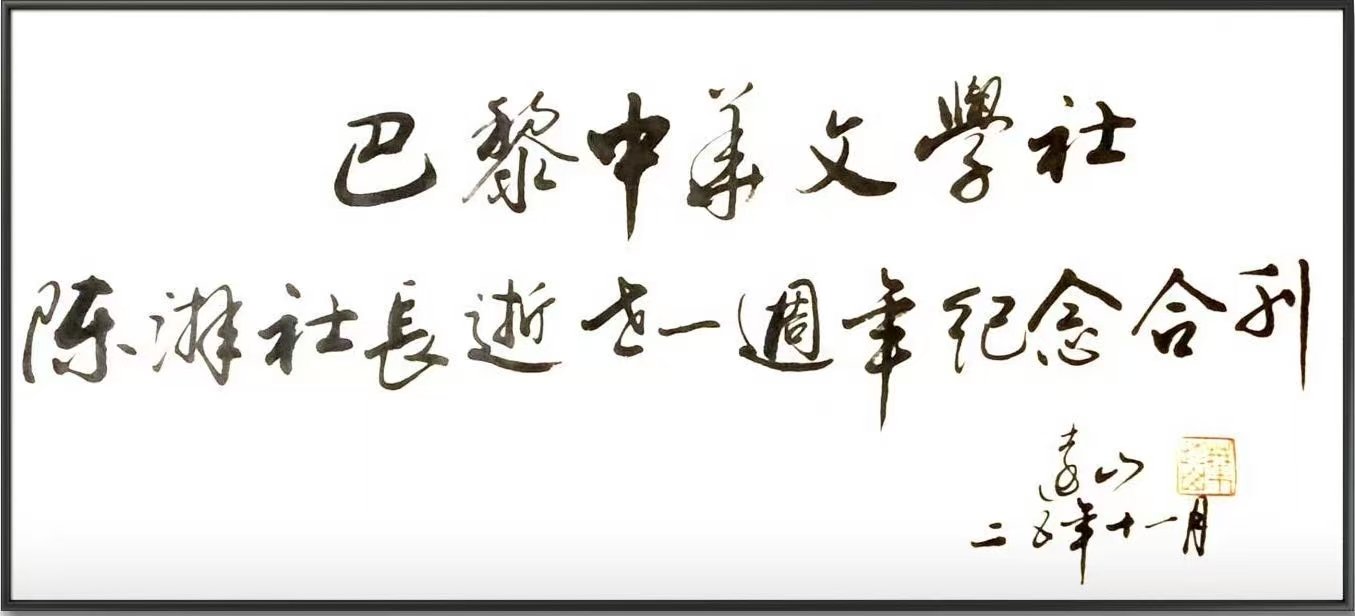 巴黎中华文學社
陈湃社長逝世一週年紀念合刊
遠山
二五年十一月